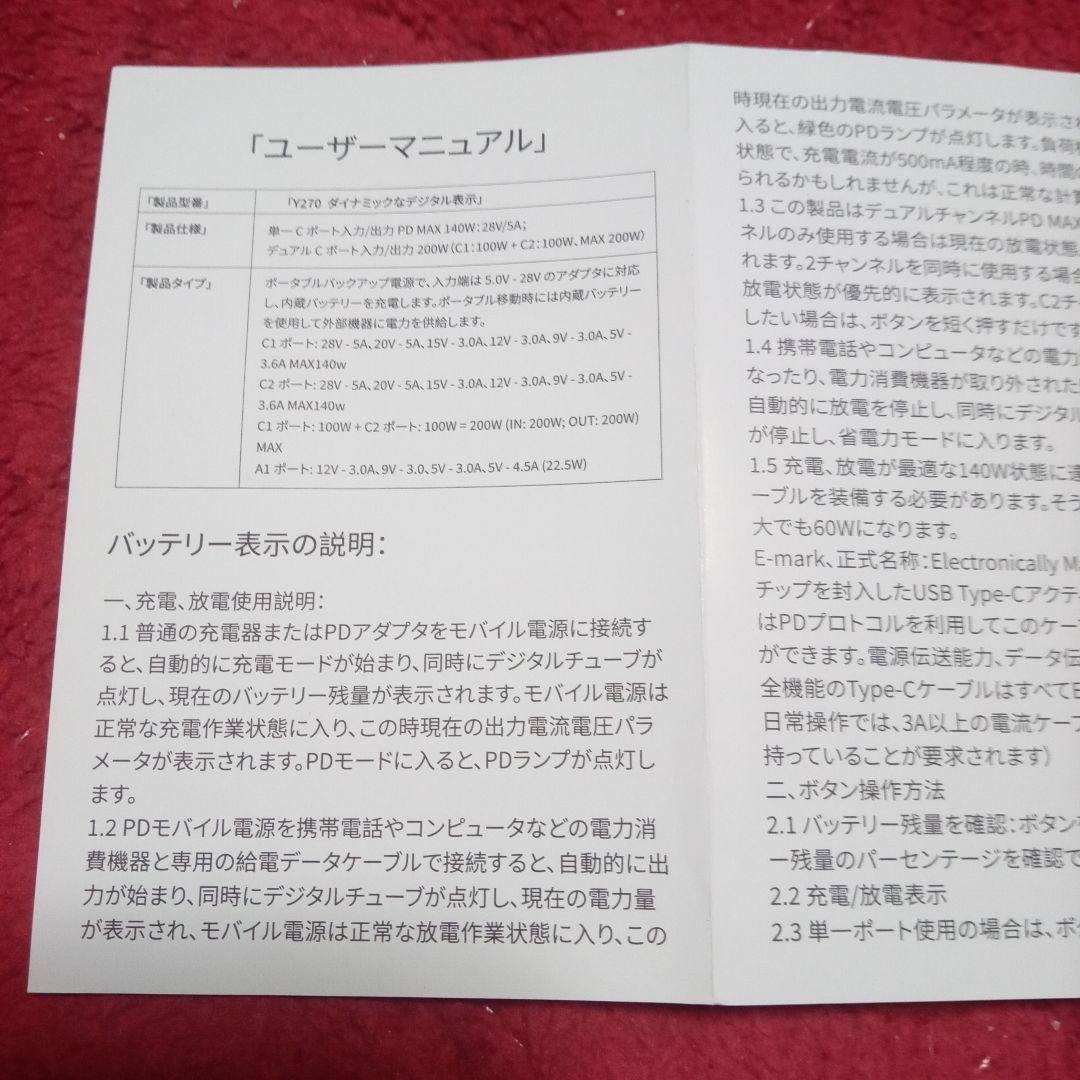 「ユーザーマニュアル」
「製品型番」 「Y270 ダイナミックなデジタル表示」
「製品仕様」 単一 C ポート入力/出力 PD MAX 140W：28V/5A；
デュアル C ポート入力/出力 200W（C1：100W + C2：100W、MAX 200W）
「製品タイプ」 ポータブルバックアップ電源で、入力端は 5.0V - 28V のアダプタに対応
し、内蔵バッテリーを充電します。ポータブル移動時には内蔵バッテリー
を使用して外部機器に電力を供給します。
C1 ポート: 28V - 5A、20V - 5A、15V - 3.0A、12V - 3.0A、9V - 3.0A、5V -
3.6A MAX140w
C2 ポート: 28V - 5A、20V - 5A、15V - 3.0A、12V - 3.0A、9V - 3.0A、5V -
3.6A MAX140w
C1 ポート: 100W + C2 ポート: 100W = 200W (IN: 200W; OUT: 200W)
MAX
A1 ポート: 12V - 3.0A、9V - 3.0、5V - 3.0A、5V - 4.5A (22.5W)
バッテリー表示の説明：
一、充電、放電使用説明：
1.1 普通の充電器またはPDアダプタをモバイル電源に接続す
ると、自動的に充電モードが始まり、同時にデジタルチューブが
点灯し、現在のバッテリー残量が表示されます。モバイル電源は
正常な充電作業状態に入り、この時現在の出力電流電圧パラ
メータが表示されます。PDモードに入ると、PDランプが点灯し
ます。
1.2 PDモバイル電源を携帯電話やコンピュータなどの電力消
費機器と専用の給電データケーブルで接続すると、自動的に出
力が始まり、同時にデジタルチューブが点灯し、現在の電力量
が表示され、モバイル電源は正常な放電作業状態に入り、この
時現在の出力電流電圧パラメータが表示さ
入ると、緑色のPDランプが点灯します。負荷
状態で、充電電流が500mA程度の時、時間
られるかもしれませんが、これは正常な計
1.3 この製品はデュアルチャンネルPD MAX
ネルのみ使用する場合は現在の放電状態
れます。2チャンネルを同時に使用する場合
放電状態が優先的に表示されます。C2チ
したい場合は、ボタンを短く押すだけです
1.4 携帯電話やコンピュータなどの電力
なったり、電力消費機器が取り外された
自動的に放電を停止し、同時にデジタル
が停止し、省電力モードに入ります。
1.5 充電、放電が最適な140W状態に
ーブルを装備する必要があります。そう
大でも60Wになります。
E-mark、正式名称：Electronically M
チップを封入したUSB Type-Cアクテ
はPDプロトコルを利用してこのケー
ができます。電源伝送能力、データ伝
全機能のType-Cケーブルはすべて
日常操作では、3A以上の電流ケー
持っていることが要求されます）
二、ボタン操作方法
2.1 バッテリー残量を確認：ボタン
ー残量のパーセンテージを確認で
2.2 充電/放電表示
2.3 単一ポート使用の場合は、ボ